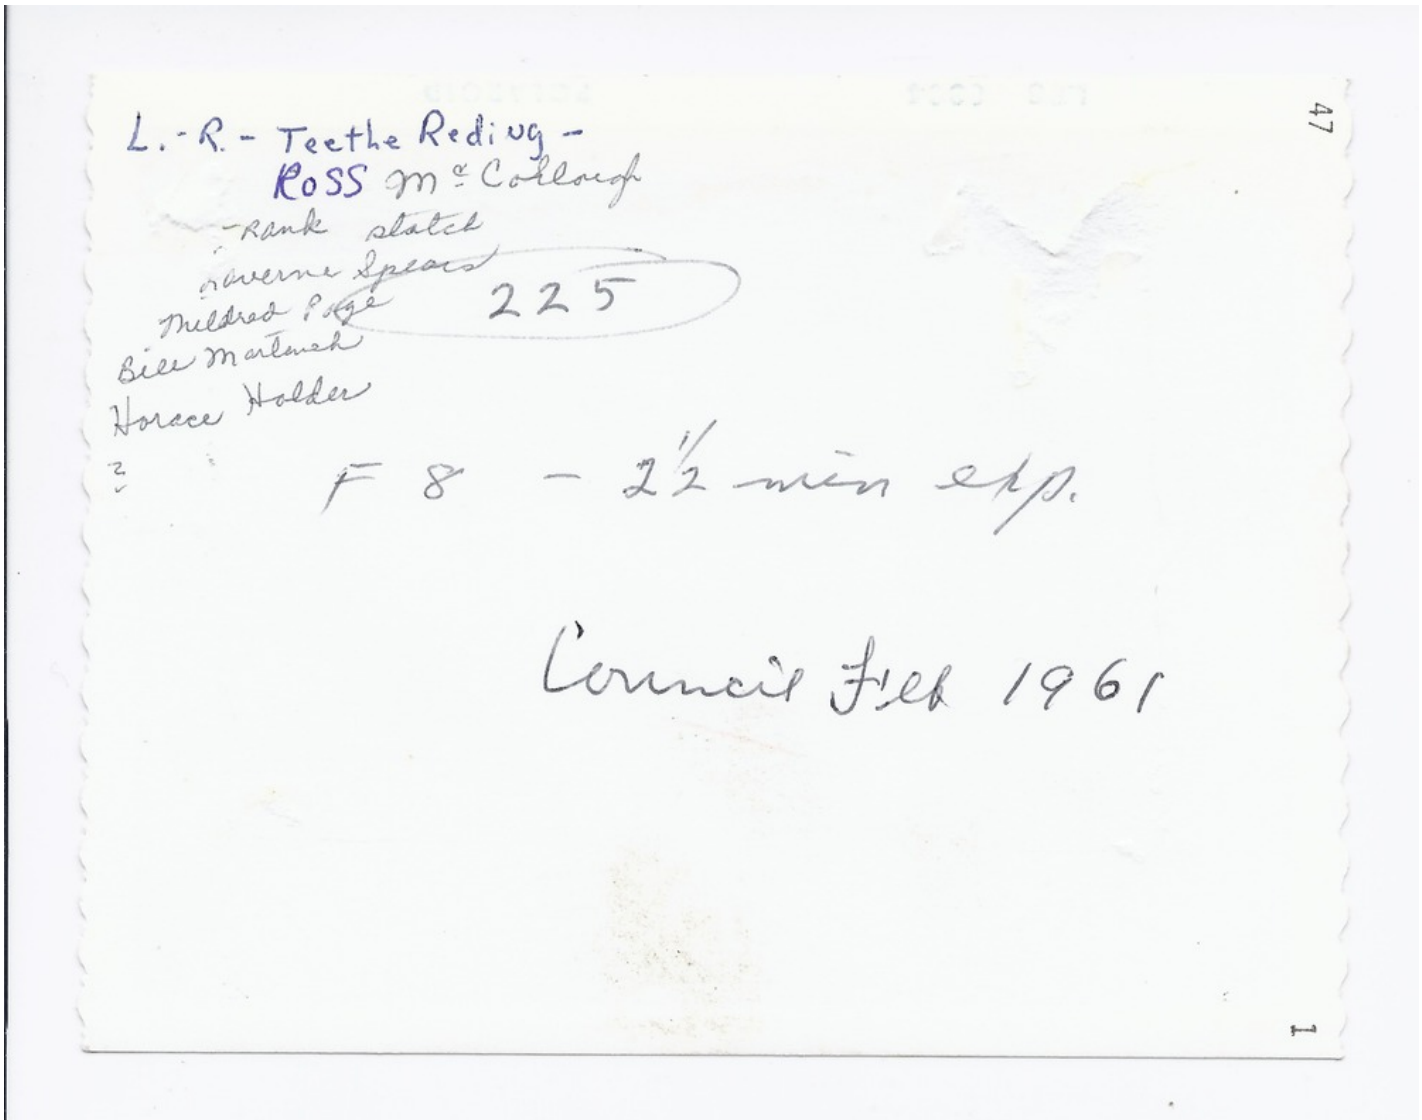 L.-R.- Teethe Reding -
Ross Mc Collough
-rank statch
Laverne Spears
225
Mildred Page
Bill
Horace Holder
?
F 8 - 2 1/2 min exp.
Council Feb 1961
47
1